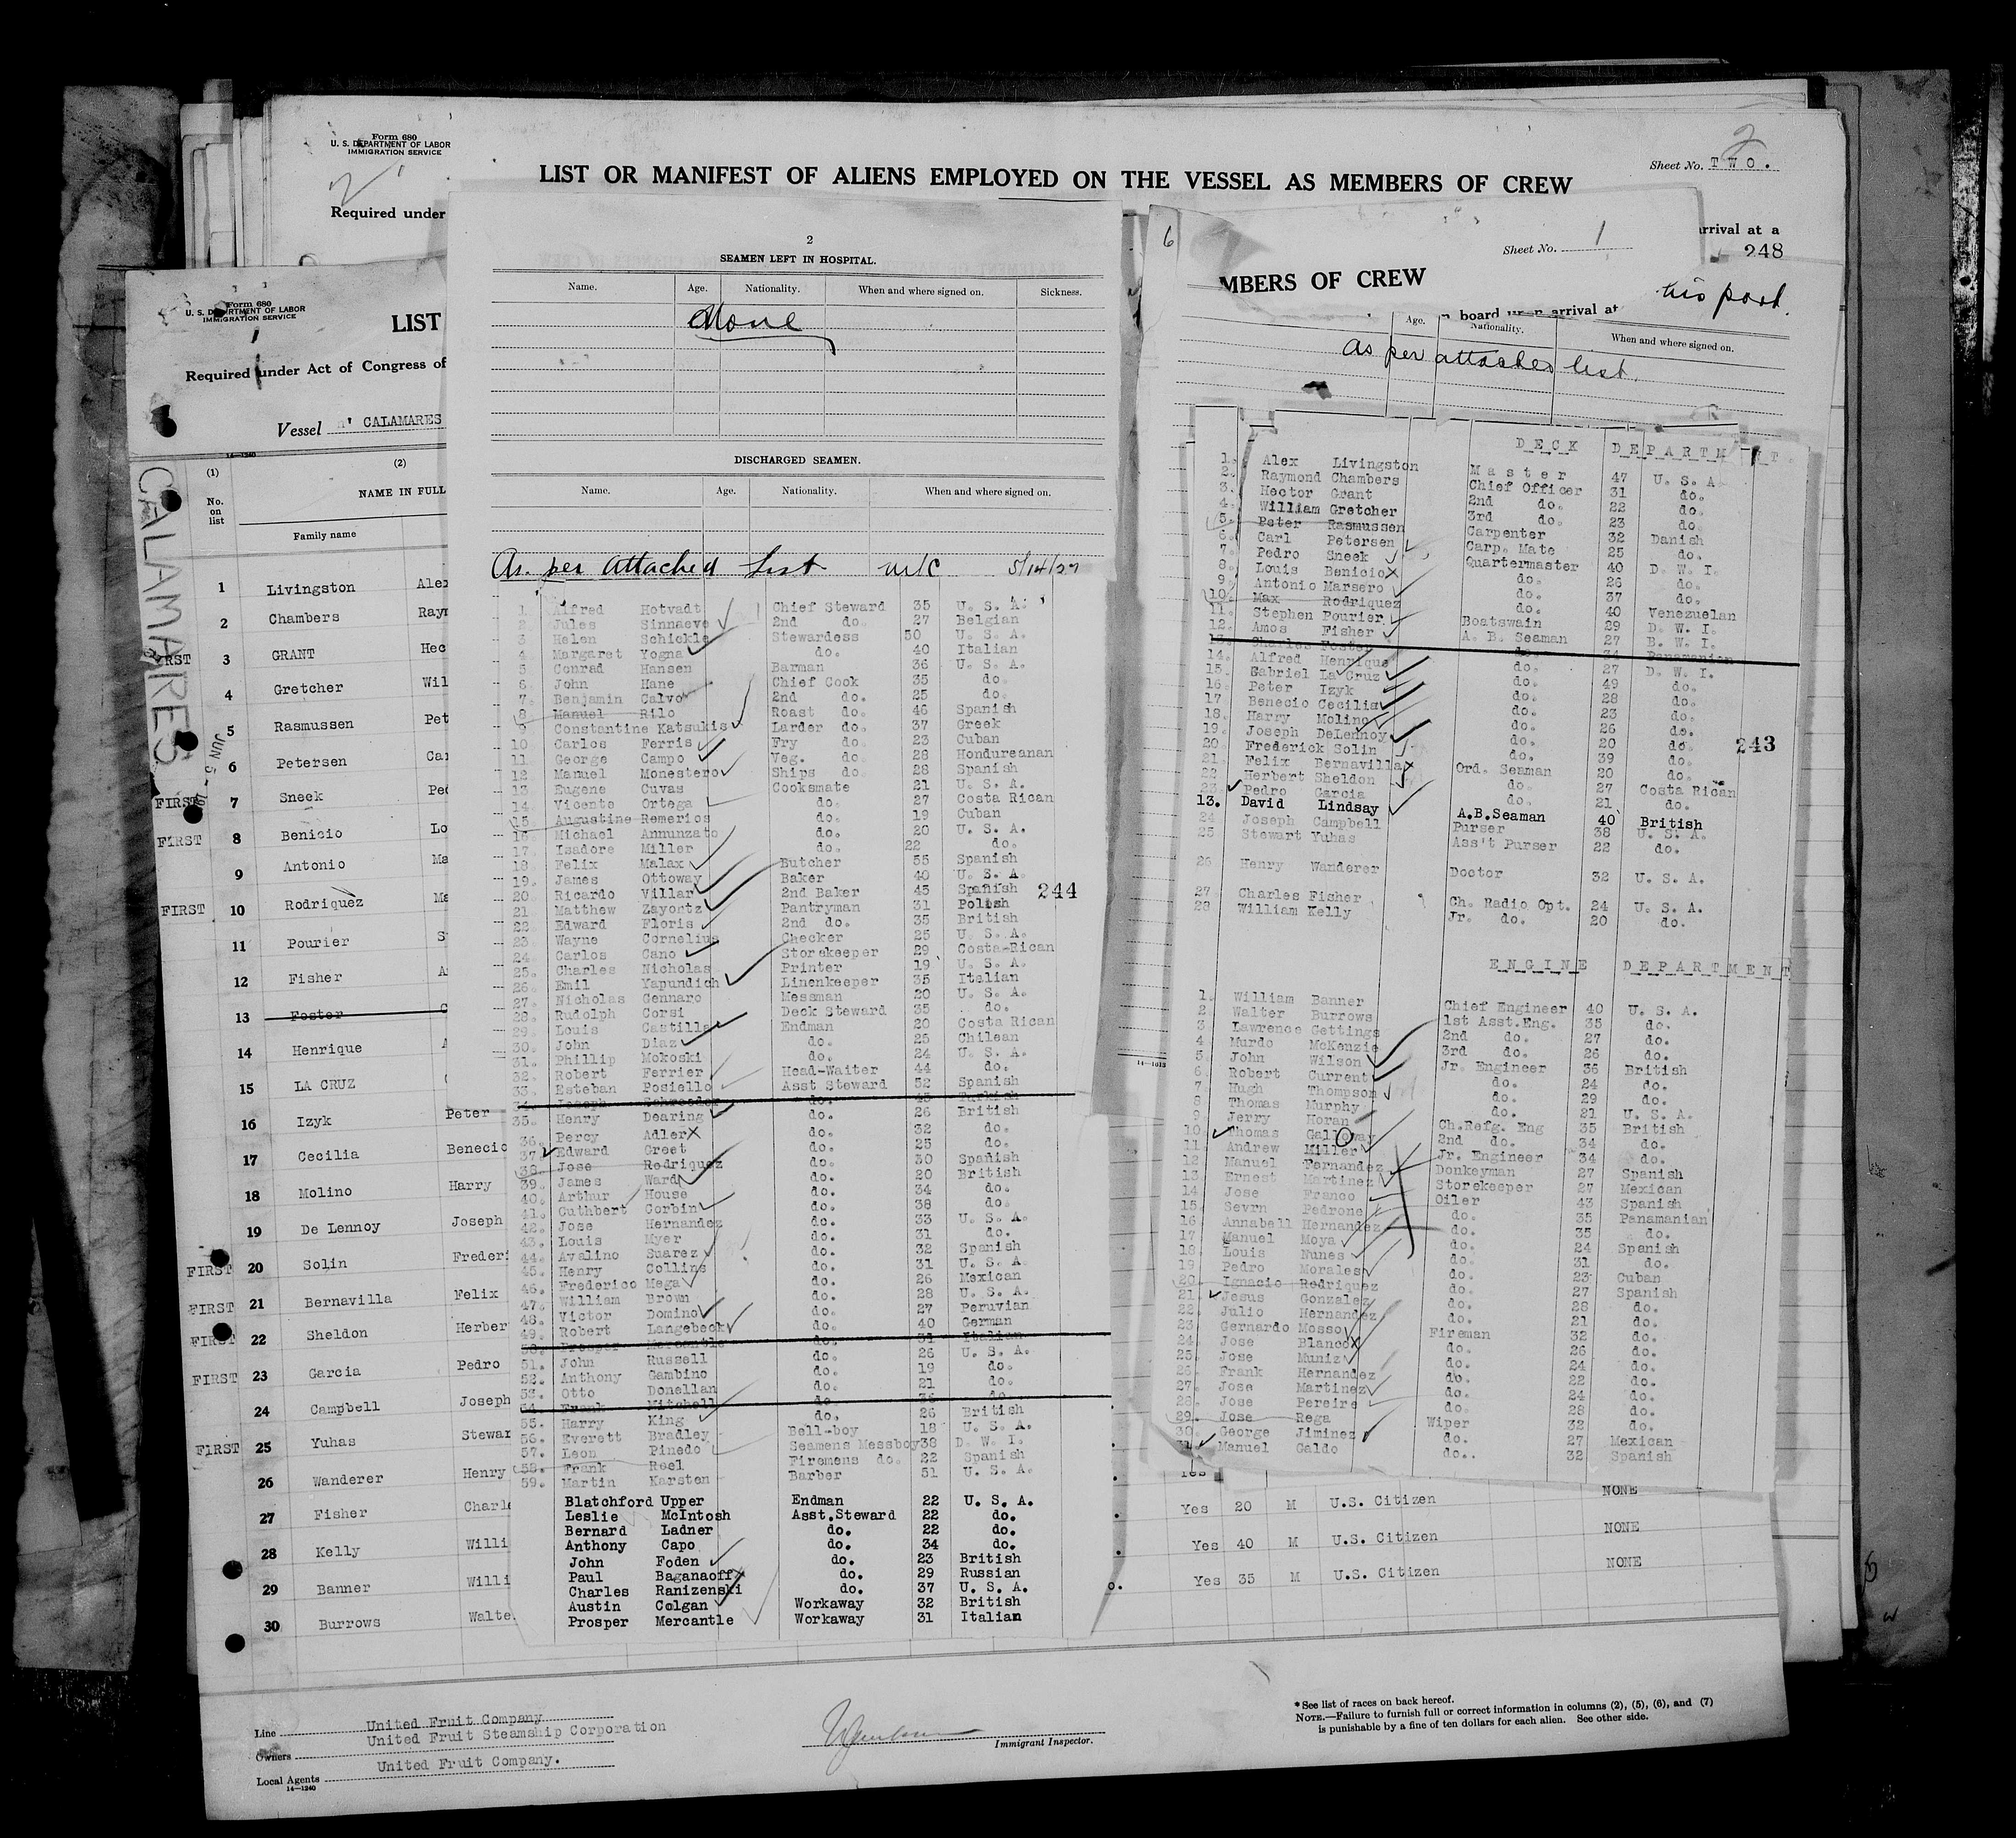 Form 680
U. S. DEPARTMENT OF LABOR
IMMIGRATION SERVICE
Sheet No. T W O .
2
LIST OR MANIFEST OF ALIENS EMPLOYED ON THE VESSEL AS MEMBERS OF CREW
Required under
arrival at a
248
Form 680
U. S. DEPARTMENT OF LABOR
IMMIGRATION SERVICE
LIST
Required under Act of Congress of
Vessel CALAMARES
14—1240
CALAMARES
JUN 5 -
(1) (2)
No. on list
NAME IN FULL
Family name
1 Livingston Alex
2 Chambers Raym
FIRST 3 GRANT Hec
4 Gretcher Wil
5 Rasmussen Pet
6 Petersen Car
FIRST 7 Sneek Ped
FIRST 8 Benicio Lo
9 Antonio Ma
FIRST 10 Rodriquez Ma
11 Pourier S
12 Fisher A
13 Foster C
14 Henrique A
15 LA CRUZ
16 Izyk Peter
17 Cecilia Benecio
18 Molino Harry
19 De Lennoy Joseph
FIRST 20 Solin Frederi
FIRST 21 Bernavilla Felix
FIRST 22 Sheldon Herber
FIRST 23 Garcia Pedro
24 Campbell Joseph
FIRST 25 Yuhas Stewar
26 Wanderer Henry
27 Fisher Charle
28 Kelly Willi
29 Banner Willi
30 Burrows Walte
2
SEAMEN LEFT IN HOSPITAL.
Name. Age. Nationality. When and where signed on. Sickness.
None
DISCHARGED SEAMEN.
Name. Age. Nationality. When and where signed on.
As per attached List m/c 5/14/27
1. Alfred Hotvadt Chief Steward 35 U. S. A.
2. Jules Sinnaeve 2nd do. 27 Belgian
3. Helen Schickle Stewardess 50 U. S. A.
4. Margaret Yogna do. 40 Italian
5 Conrad Hansen Barman 36 U. S. A.
6. John Hane Chief Cook 35 do.
7. Benjamin Calvo 2nd do. 25 do.
8 Manuel Rilo Roast do. 46 Spanish
9 Constantine Katsukis Larder do. 37 Greek
10 Carlos Ferris Fry do. 23 Cuban
11 George Campo Veg. do. 28 Hondureanan
12 Manuel Monestero Ships do. 28 Spanish
13 Eugene Cuvas Cooksmate 21 U. S. A.
14. Vicente Ortega do. 27 Costa Rican
15. Augustine Remerios do. 19 Cuban
16. Michael Annunzato do. 20 U. S. A.
17. Isadore Miller do. 22 do.
18. Felix Malax Butcher 55 Spanish
19. James Ottoway Baker 40 U. S. A.
20. Ricardo Villar 2nd Baker 45 Spanish
244
21 Matthew Zayontz Pantryman 31 Polish
22. Edward Floris 2nd do. 35 British
23. Wayne Cornelius Checker 25 U. S. A.
24. Carlos Cano Storekeeper 29 Costa-Rican
25. Charles Nicholas Printer 19 U. S. A.
26. Emil Yapundich Linenkeeper 35 Italian
27. Nicholas Gennaro Messman 20 U. S. A.
28. Rudolph Corsi Deck Steward 35 do.
29. Louis Castilla Endman 20 Costa Rican
30. John Diaz do. 25 Chilean
31. Phillip Mokoski do. 24 U. S. A.
32. Robert Ferrier Head-Waiter 44 do.
33. Esteban Posiello Asst Steward 52 Spanish
34. Joseph Schroeder do. 45 Turkish
35. Henry Dearing do. 26 British
36. Percy Adler do. 32 do.
37. Edward Greet do. 25 do.
38. Jose Rodriquez do. 30 Spanish
39. James Ward do. 20 British
40. Arthur House do. 34 do.
41. Cuthbert Corbin do. 38 do.
42. Jose Hernandez do. 33 U. S. A.
43. Louis Myer do. 31 do.
44. Avalino Suarez do. 32 Spanish
45. Henry Collins do. 31 U. S. A.
46. Frederico Mega do. 26 Mexican
47. William Brown do. 28 U. S. A.
48. Victor Domino do. 27 Peruvian
49. Robert Langebeck do. 40 German
50. Prosper Mercantle do. 31 Italian
51. John Russell do. 26 U. S. A.
52. Anthony Gambino do. 19 do.
53. Otto Donellan do. 21 do.
54. Frank Mitchell do. do.
55. Harry King do. 26 British
56. Everett Bradley Bell-boy 18 U. S. A.
57. Leon Pinedo Seamens Messboy 38 D. W. I.
58. Frank Reel Firemens do. 22 Spanish
59. Martin Karsten Barber 51 U. S. A.
Blatchford Upper Endman 22 U. S. A.
Leslie McIntosh Asst.Steward 22 do.
Bernard Ladner do. 22 do.
Anthony Capo do. 34 do.
John Foden do. 23 British
Paul Baganaoff do. 29 Russian
Charles Ranizenski do. 37 U. S. A.
Austin Colgan Workaway 32 British
Prosper Mercantle Workaway 31 Italian
6
Sheet No. 1
MBERS OF CREW
board upon arrival at
his port.
Age. Nationality. When and where signed on.
As per attached list.
D E C K D E P A R T M T.
1. Alex Livingston Master 47 U. S. A.
2. Raymond Chambers Chief Officer 31 do.
3. Hector Grant 2nd do. 22 do.
4. William Gretcher 3rd do. 23 do.
5. Peter Rasmussen Carpenter 32 Danish
6. Carl Petersen Carp. Mate 25 do.
7. Pedro Sneek Quartermaster 40 D. W. I.
8. Louis Benicio do. 26 do.
9. Antonio Marsero do. 37 do.
10. Max Rodriquez do. 40 Venezuelan
11. Stephen Pourier Boatswain 29 D. W. I.
12. Amos Fisher A. B. Seaman 27 B. W. I.
13. Charles Foster do. 34 Panamanian
14. Alfred Henrique do. 27 D. W. I.
15. Gabriel La Cruz do. 49 do.
16. Peter Izyk do. 28 do.
17 Benecio Cecilia do. 23 do.
18. Harry Molino do. 26 do.
19. Joseph DeLennoy do. 20 do.
243
20. Frederick Solin do. 39 do.
21. Felix Bernavilla Ord. Seaman 20 do.
22 Herbert Sheldon do. 27 Costa Rican
23. Pedro Garcia do. 21 do.
13. David Lindsay A.B.Seaman 40 British
24 Joseph Campbell Purser 38 U. S. A.
25 Stewart Yuhas Ass't Purser 22 do.
26 Henry Wanderer Doctor 32 U. S. A.
27. Charles Fisher Ch. Radio Opt. 24 U. S. A.
28 William Kelly Jr. do. 20 do.
E N G I N E D E P A R T M E N T
1. William Banner Chief Engineer 40 U. S. A.
2 Walter Burrows 1st Asst.Eng. 35 do.
3 Lawrence Gettings 2nd do. 27 do.
4 Murdo McKenzie 3rd do. 26 do.
5. John Wilson Jr. Engineer 36 British
6. Robert Current do. 24 do.
7 Hugh Thompson do. 29 do.
8 Thomas Murphy do. 21 U. S. A.
9 Jerry Horan Ch.Refg. Eng 35 British
10 Thomas Galloway 2nd do. 34 do.
11. Andrew Miller Jr. Engineer 34 do.
12 Manuel Fernandez Donkeyman 27 Spanish
13 Ernest Martinez Storekeeper 27 Mexican
14 Jose Franco Oiler 43 Spanish
15. Sevrn Pedrone do. 35 Panamanian
16 Annabell Hernandez do. 35 do.
17 Manuel Moya do. 24 Spanish
18. Louis Nunes do. 31 do.
19 Pedro Morales do. 23 Cuban
20. Ignacio Rodriquez do. 27 Spanish
21. Jesus Gonzalez do. 28 do.
22. Julio Hernandez do. 21 do.
23. Gernardo Mosso Fireman 32 do.
24. Jose Blanco do. 26 do.
25. Jose Muniz do. 24 do.
26. Frank Hernandez do. 22 do.
27. Jose Martinez do. 24 do.
28. Jose Pereire do. 28 do.
29. Jose Rega Wiper 32 do.
30. George Jiminez do. 27 Mexican
31. Manuel Galdo do.. 32 Spanish
14—1013
Yes
Yes 20 M U.S. Citizen NONE
Yes 40 M U.S. Citizen NONE
o. Yes 35 M U.S. Citizen NONE
Line United Fruit Company
Owners United Fruit Steamship Corporation
Local Agents United Fruit Company.
14—1240
Immigrant Inspector.
*See list of races on back hereof.
NOTE.—Failure to furnish full or correct information in columns (2), (5), (6), and (7)
is punishable by a fine of ten dollars for each alien. See other side.